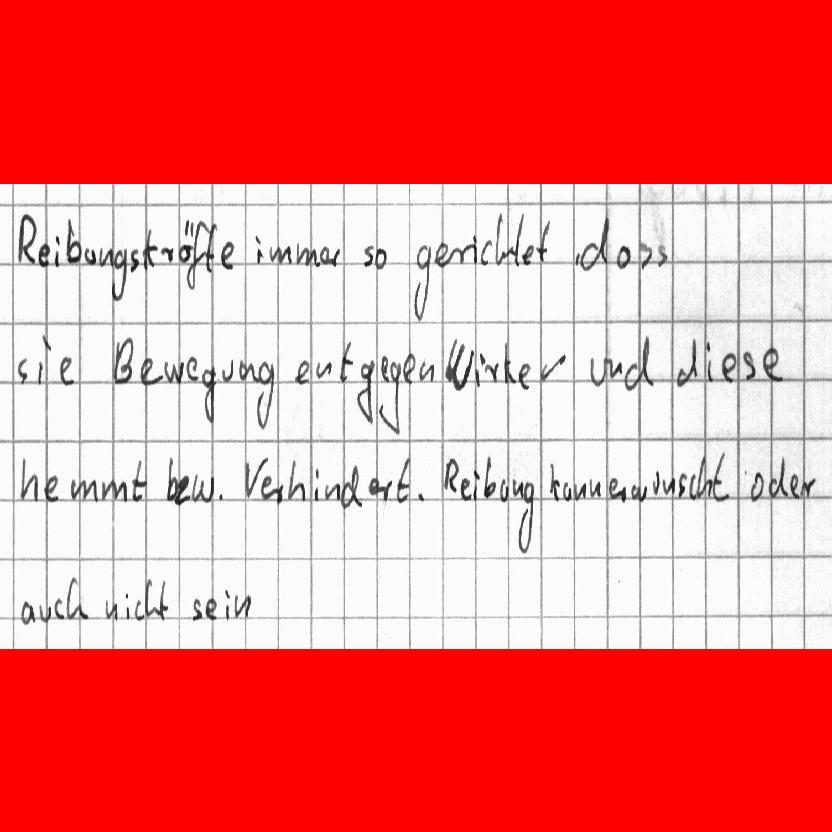 Reibungskräfte immer so gerichtet, dass
sie Bewegung entgegen Wirken und diese
hemmt bzw. Verhindert. Reibung kann erwünscht oder
auch nicht sein